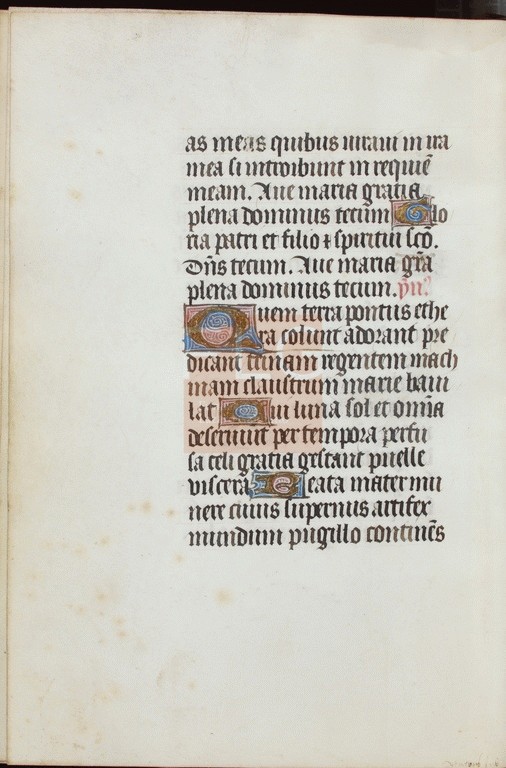 as meas quibus iuraui in ira
mea si introibunt in requiē
meam. Aue maria gratia
plena dominus tecum Glo
ria patri et filio ⁊ spiritui sc̄o.
Dn̄s tecum. Aue maria gr̄a
plena dominus tecum. ym̄.
Quem terra pontus ethe
ra colunt adorant pre
dicant trinam regentem mach
inam claustrum marie baiu
lat Cui luna sol et omīa
deseruiut per tempora perfu
sa celi gratia gestant puelle
viscera Beata mater mu
nere cuius supernus artifex
mundum pugillo continēs